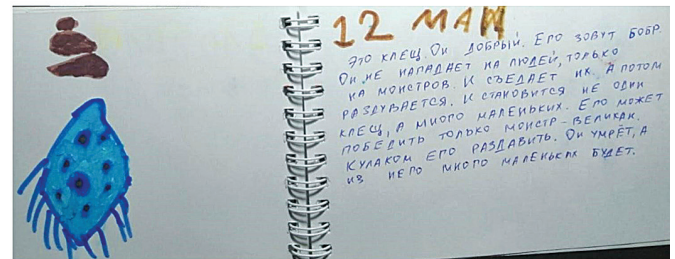 12 МАЯ
ЭТО КЛЕЩ. ОН ДОБРЫЙ. ЕГО ЗОВУТ БОБР.
ОН НЕ НАПАДАЕТ НА ЛЮДЕЙ, ТОЛЬКО
НА МОНСТРОВ. И СЪЕДАЕТ ИХ. А ПОТОМ
РАЗДУВАЕТСЯ. И СТАНОВИТСЯ НЕ ОДИН
КЛЕЩ, А МНОГО МАЛЕНЬКИХ. ЕГО МОЖЕТ
ПОБЕДИТЬ ТОЛЬКО МОНСТР-ВЕЛИКАН.
КУЛАКОМ ЕГО РАЗДАВИТЬ. ОН УМРЁТ, А
ИЗ НЕГО МНОГО МАЛЕНЬКИХ БУДЕТ.